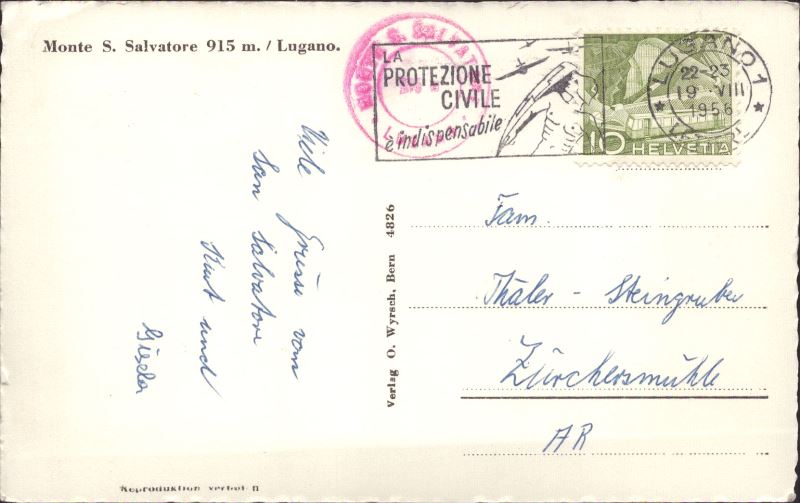 Monte S. Salvatore 915 m. / Lugano.
MONTE S. SALVATORE
LA
PROTEZIONE
CIVILE
è indispensabile
LUGANO 1
22-23
19 VIII
1956
10 HELVETIA
Viele Grüsse vom
San Salvatore
Kurt und
Gisela
Verlag O. Wyrsch, Bern 4826
Fam.
Thäler - Steingruber
Zürchersmühle
AR
Reproduktion verboten